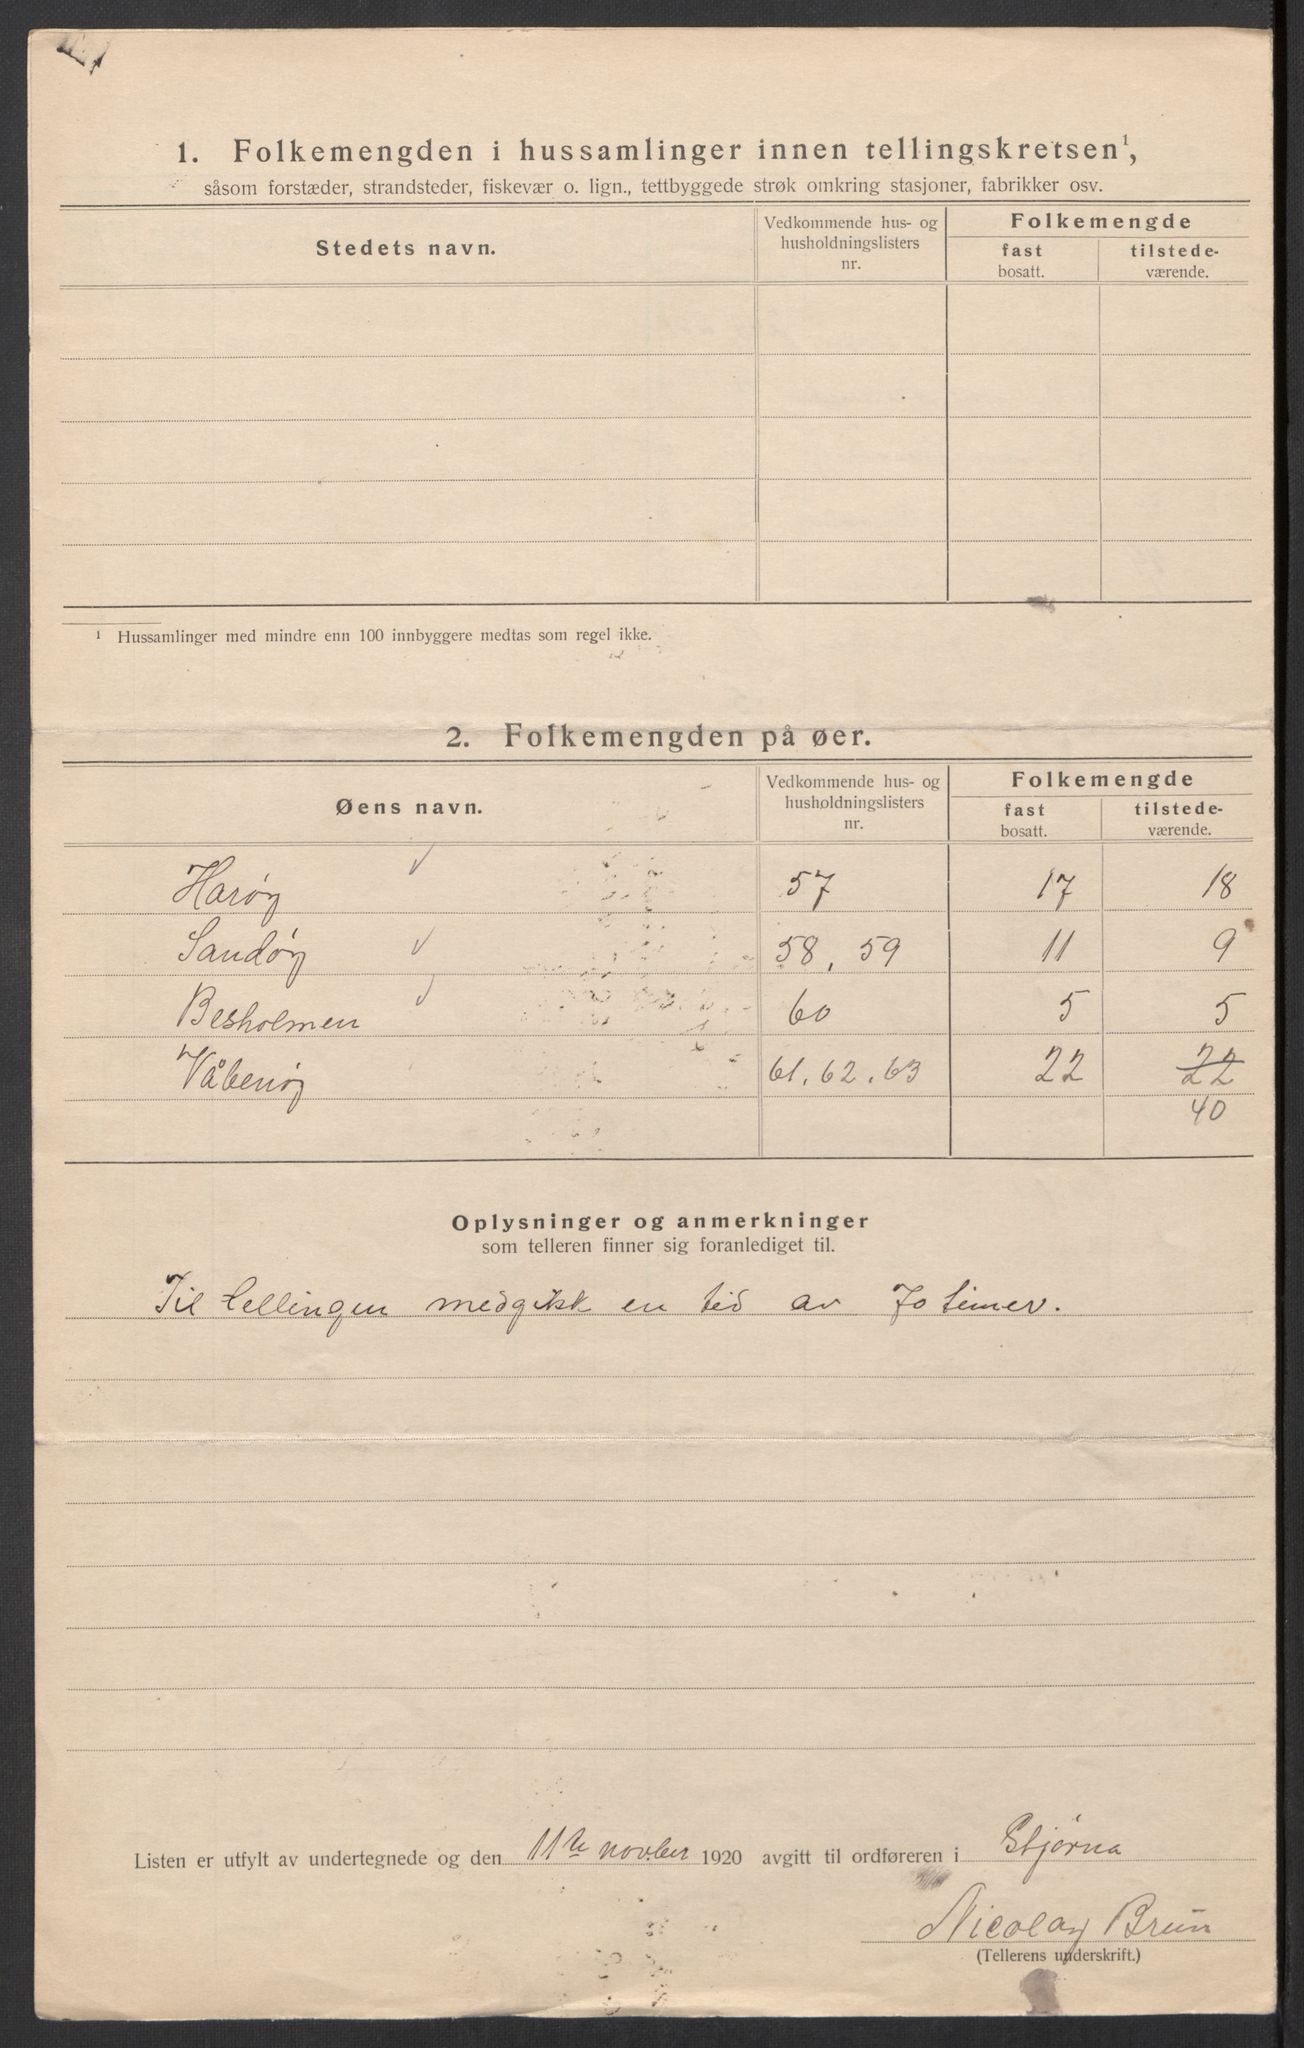 1. Folkemengden i hussamlinger innen tellingskretsen¹,
såsom forstæder, strandsteder, fiskevær o. lign., tettbyggede strøk omkring stasjoner, fabrikker osv.
Stedets navn. Vedkommende hus- og husholdningslisters nr. Folkemengde
fast bosatt. tilstede-værende.
¹ Hussamlinger med mindre enn 100 innbyggere medtas som regel ikke.
2. Folkemengden på øer.
Øens navn. Vedkommende hus- og husholdningslisters nr. Folkemengde
fast bosatt. tilstede-værende.
Harøy 57 17 18
Sandøy 58, 59 11 9
Besholmen 60 5 5
Våbenøy 61, 62, 63 22 22
40
Oplysninger og anmerkninger
som telleren finner sig foranlediget til.
Til tellingen medgikk en tid av 70 timer.
Listen er utfylt av undertegnede og den 11te novber 1920 avgitt til ordføreren i Stjørna
Nicolay Brun
(Tellerens underskrift.)